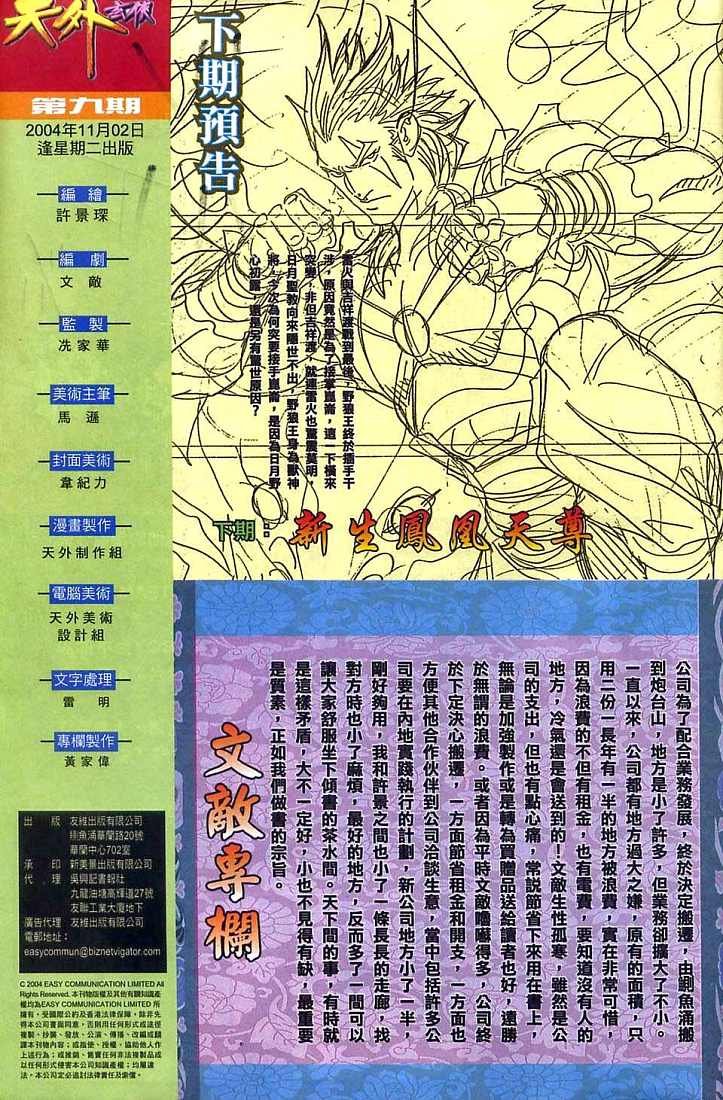 天外玄俠
第九期
2004年11月02日
逢星期二出版
編繪
許景琛
編劇
文敵
監製
冼家華
美術主筆
馬遜
封面美術
韋紀力
漫畫製作
天外制作組
電腦美術
天外美術
設計組
文字處理
雷明
專欄製作
黃家偉
出版 友維出版有限公司
鰂魚涌華蘭路20號
華蘭中心702室
承印 新美景出版有限公司
代理 吳興記書報社
九龍油塘高輝道27號
友聯工業大廈地下
廣告代理 友維出版有限公司
電郵地址：
easycommun@biznetvigator.com
© 2004 EASY COMMUNICATION LIMITED All
Rights Reserved. 本刊物版權及其他有關知識產
權均為EASY COMMUNICATION LIMITED 所
擁有，受國際公約及香港法律保障，除非先
得本公司書面同意，否則用任何形式或途徑
複製、抄襲、發放、公演、傳播、改編或翻
譯本刊物內容；或指使、授權、協助他人作
上述行為；或推銷、售賣任何非法複製品或
以任何形式侵害本公司知識產權；均屬違
法，本公司定必追討法律責任及索償。
下期預告
雷火與吉祥渡戰到最後，野狼王終於插手干
涉，原因竟然是為了接掌崑崙，這一下橫來
突變，非但吉祥渡，就連雷火也驚震莫明，
日月聖教向來隱世不出，野狼王身為獸神
將，今次為何突要接手崑崙，是因為日月野
心初露，還是另有驚世原因？
下期：新生鳳凰天尊
公司為了配合業務發展，終於決定搬遷，由鰂魚涌搬
到炮台山，地方是小了許多，但業務卻擴大了不小。
一直以來，公司都有地方過大之嫌，原有的面積，只
用二份一長年有一半的地方被浪費，實在非常可惜，
因為浪費的不但有租金，也有電費，要知道沒有人的
地方，冷氣還是會送到的！文敵生性孤寒，雖然是公
司的支出，但也有點心痛，常說節省下來用在書上，
無論是加強製作或是轉為買贈品送給讀者也好，遠勝
於無謂的浪費。或者因為平時文敵嚕囌得多，公司終
於下定決心搬遷，一方面節省租金和開支，一方面也
方便其他合作伙伴到公司洽談生意，當中包括許多公
司要在內地實踐執行的計劃，新公司地方小了一半，
剛好夠用，我和許景之間也小了一條長長的走廊，找
對方時也小了麻煩，最好的地方，反而多了一間可以
讓大家舒服坐下傾書的茶水間。天下間的事，有時就
是這樣矛盾，大不一定好，小也不見得有缺，最重要
是質素，正如我們做書的宗旨。
文敵專欄